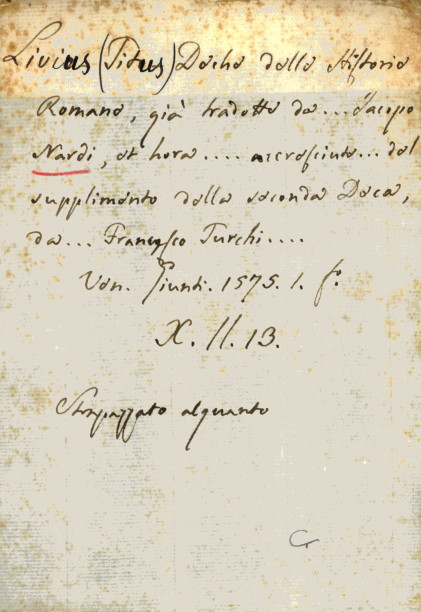 Livius (Titus) Deche delle Historie
Romane, già tradotte da... Jacopo
Nardi, et hora .... accresciute... del
supplimento della seconda Deca,
da... Francesco Turchi....
Ven. Giunti. 1575. 1. f.º
X. II. 13.
Strapazzato alquanto